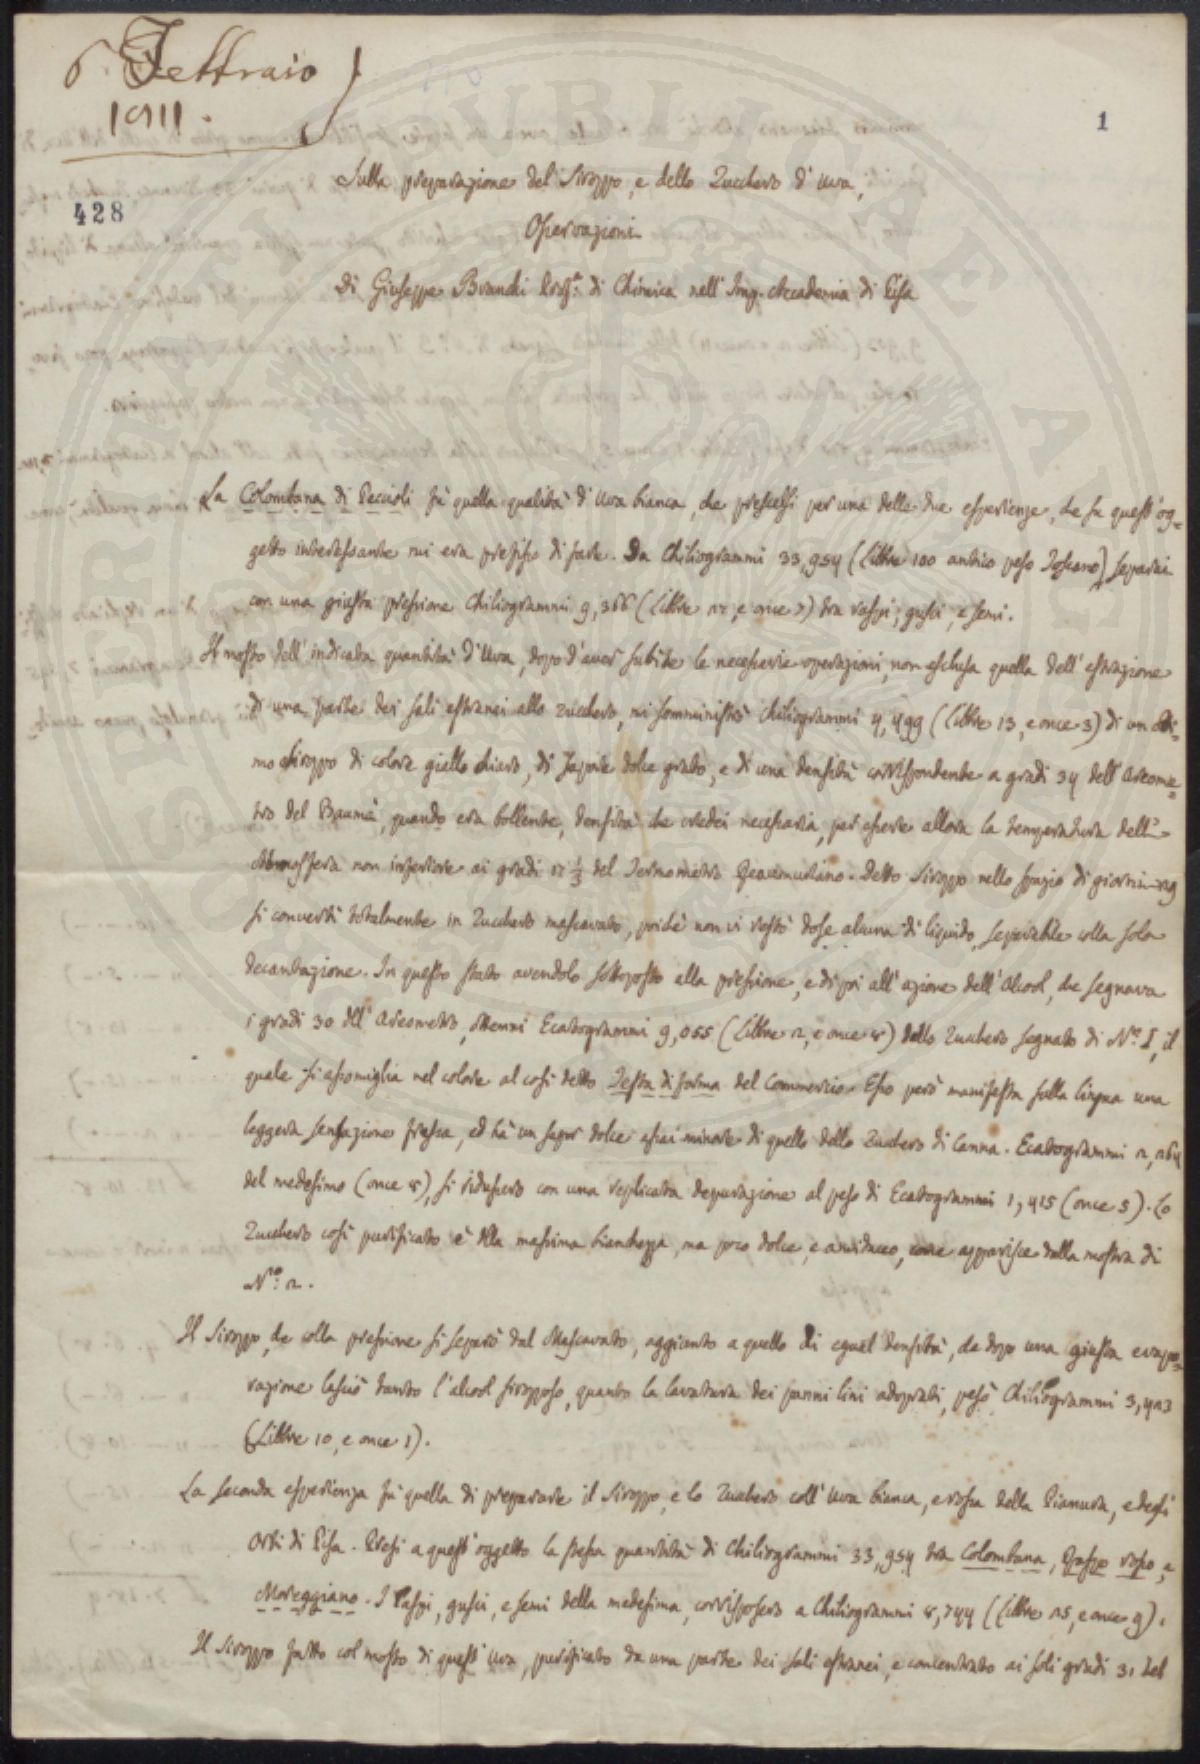 6 Febbraio
1911.
1
428
Sulla preparazione del Siroppo, e dello Zucchero d'Uva,
Osservazioni
Di Giuseppe Branchi Prof.e di Chimica nell'Imp. Accademia di Pisa
La Colombana di Peccioli fù quella qualità d'Uva bianca, che prescelsi per una delle due esperienze, che su quest'og=
getto interessante mi era prefisso di fare. Da Chiliogrammi 33,954 (Libbre 100 antico peso Toscano) separai
con una giusta pressione Chiliogrammi 9,366 (Libbre e once 7) tra raspi, gusci, e semi.
Il mosto dell'indicata quantità d'Uva, dopo d'aver subite le necessarie operazioni, non esclusa quella dell'estrazione
di una parte dei sali estranei allo zucchero, mi somministrò Chiliogrammi 4,499 (Libbre 13, e once 3) di un otti=
mo siroppo di colore giallo chiaro, di sapore dolce grato, e di una densità corrispondente a gradi 34 dell'Areome=
tro del Baumè, quando era bollente, densità che credei necessaria, per essere allora la temperatura dell'
Atmosfera non inferiore ai gradi 12 1/3 del Termometro Reaumuriano. Detto Siroppo nello spazio di giorni 29
si convertì totalmente in Zucchero mascavato, poichè non vi restò dose alcuna di liquido, separabile colla sola
decantazione. In questo stato avendolo sottoposto alla pressione, e di poi all'azione dell'Alcool, che segnava
i gradi 30 dell'Areometro, ottenni Ecatogrammi 9,055 (Libbre 2, e once 8) dello Zucchero segnato di N.o I, il
quale si assomiglia nel colore al così detto Testa di forma del Commercio. Esso però manifesta sulla lingua una
leggera sensazione fresca, ed hà un sapor dolce assai minore di quello dello Zucchero di Canna. Ecatogrammi 2,264
del medesimo (once 8), si ridussero con una replicata depurazione al peso di Ecatogrammi 1,415 (once 5). Lo
Zucchero così purificato è della massima bianchezza, ma poco dolce, e amidaceo, come apparisce dalla mostra di
N.o 2.
Il Siroppo, che colla pressione si separò dal Mascavato, aggiunto a quello di egual densità, che dopo una giusta evapo=
razione lasciò tanto l'alcool siropposo, quanto la lavatura dei panni lini adoprati, pesò Chiliogrammi 3,423
(Libbre 10, e once 1).
La seconda esperienza fù quella di preparare il Siroppo, e lo Zucchero coll'Uva bianca, e rossa della Pianura, e degli
Orti di Pisa. Presi a quest'oggetto la stessa quantità di Chiliogrammi 33,954 tra Colombana, Raspo rosso, e
Moreggiano. I raspi, gusci, e semi della medesima, corrisposero a Chiliogrammi 8,744 (Libbre 25, e once 9).
Il Siroppo fatto col mosto di quest'Uva, purificato da una parte dei sali estranei, e concentrato ai soli gradi 31 del